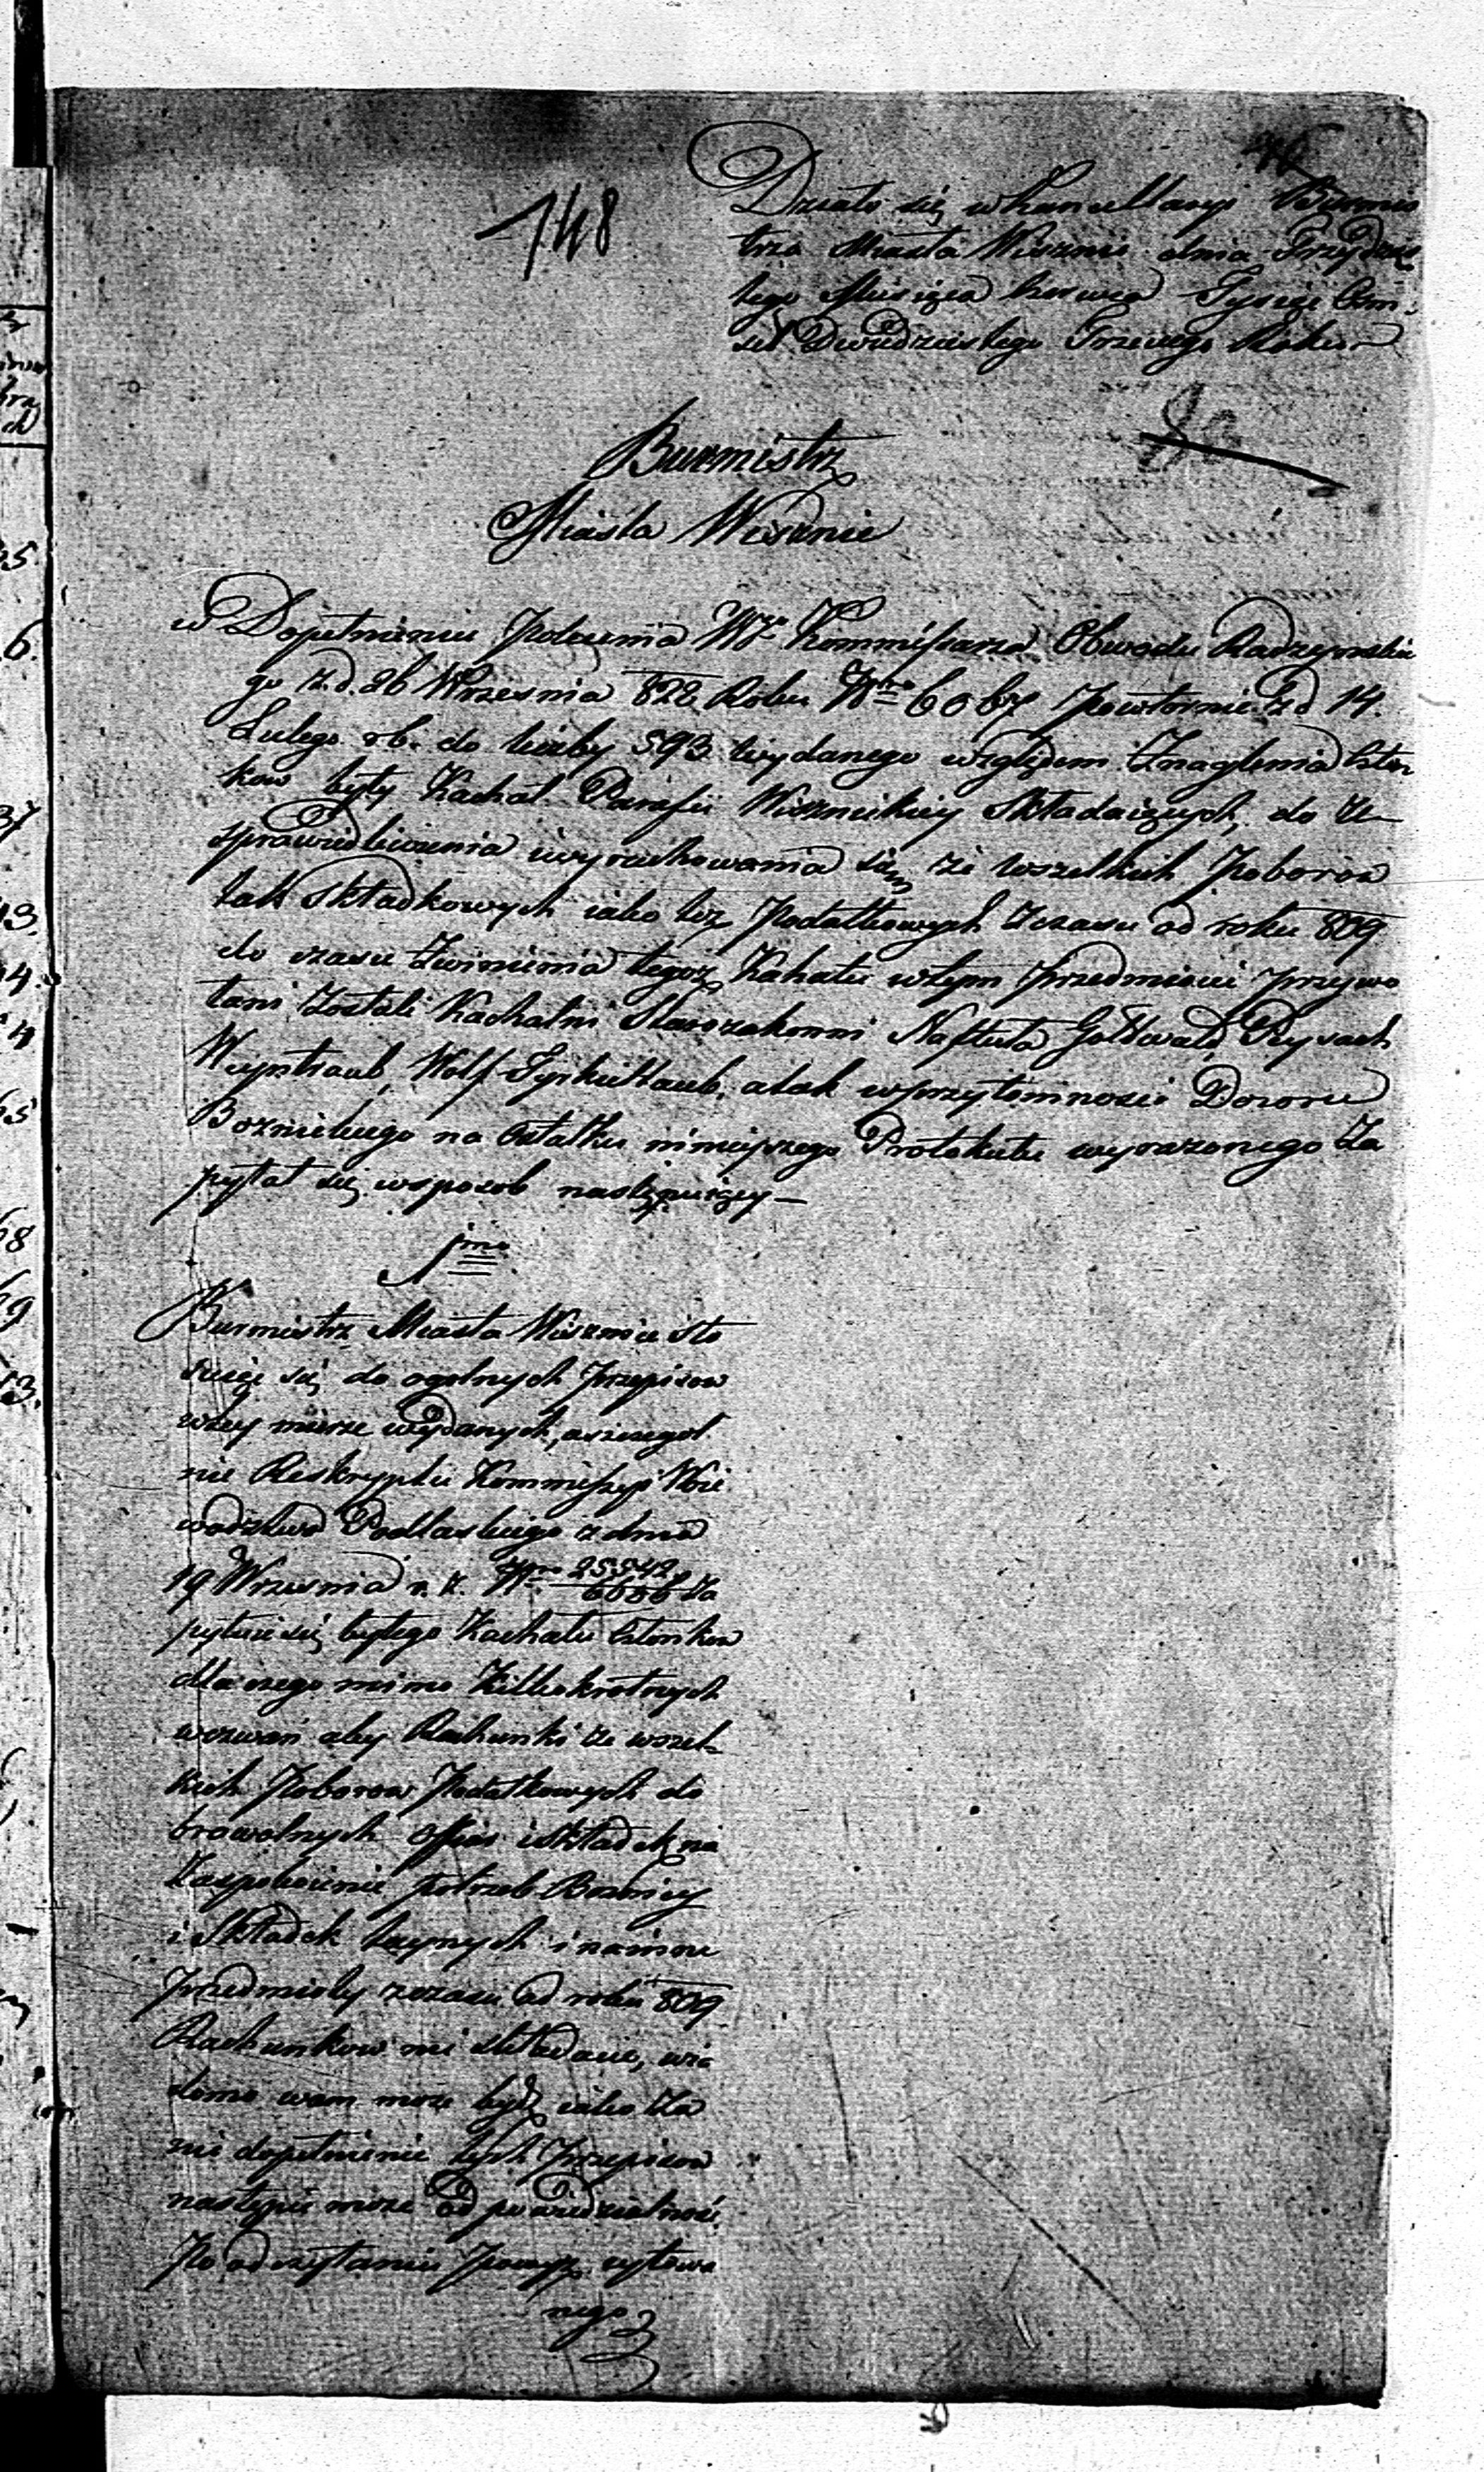 148
Działo się w Kancellaryi Burmis
trza Miasta Wisznic dnia Trzydzies
tego Miesiąca Czerwca Tysiąc Ośm
set Dwudziestego Trzeciego Roku
Burmistrz
Miasta Wisznic
w Dopełnieniu polecenia Wgo Kommissarza Obwodu Radzynskie
go z d. 26 Września 822 Roku Nro 6067 powtornie z d 14.
Lutego rb. do liczby 593 wydanego względem Znaglenia Człon
kow były Kachał Parafii Wisznickiey Składaiących, do U
sprawiedliwienia i wyrachowania się ze wszelkich poborow
tak Składkowych iako też podatkowych z czasu od roku 809
do czasu Zwinienia tegoż Kahału w tym przedmiocie przywo
łani Zostali Kachalni Starozakonni Naftuła Goldwald, Peysach
Wayntraub, Wolf Tyrkieltaub, a tak w przytomności Dozoru
Boznickiego na Ostatku ninieyszego Protokułu wyrazonego Za
pytał się w sposob następuiący
1mo
Burmistrz Miasta Wisznic sto
suiąc się do ogolnych przepisow
w tey mierze wydanych, a szczegol
nie Reskryptu Kommissyi Woie
wodztwa Podlaskiego z dnia
19 Września r. z. Nro 25542/6606 Za
pytuie się byłego Kachału Członkow
dla czego mimo Kilkokrotnych
wezwań aby Rachunki ze wszel
kich poborow podatkowych do
browolnych Offiar i składek na
Zaspokoienie potrzeb Boznicy
i Składek taynych i na inne
przedmioty z czasu od roku 809
Rachunkow nie składacie, wia
domo wam może bydź iako Za
nie dopełnienie tych przepisow
nastąpić może Odpowiedzialność
Po odczytaniu powyż cytowa
nego